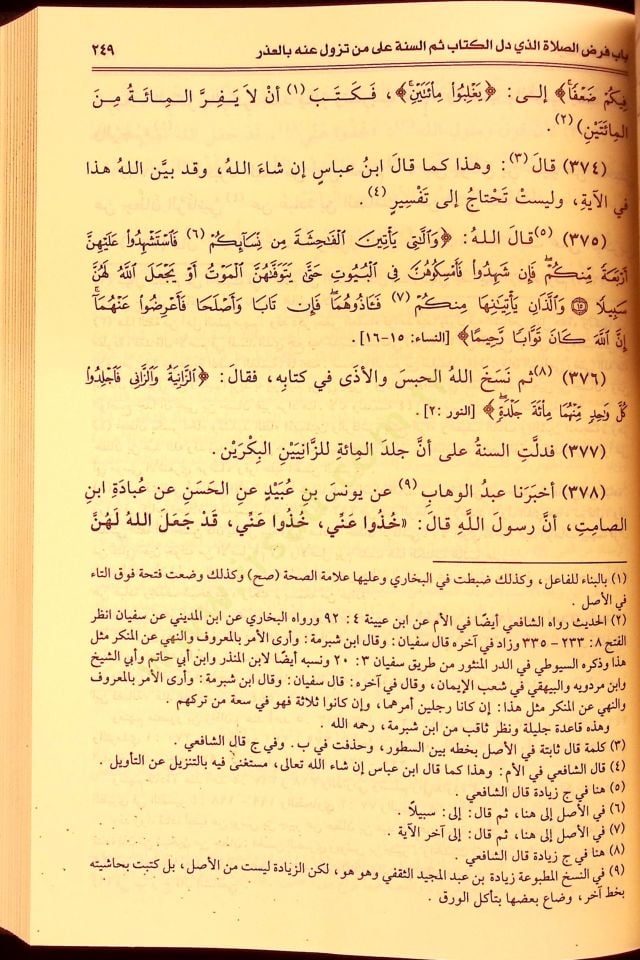 باب فرض الصلاة الذي دل الكتاب ثم السنة على من تزول عنه بالعذر ٢٤٩
فِيكُمْ ضَعْفًا﴾ إلى: ﴿يَغْلِبُوا مِائَتَيْنِ﴾، فَكَتَبَ (١) أنْ لاَ يَفِرَّ المِائَةُ مِنَ
المِائَتَيْنِ)(٢).
(٣٧٤) قالَ(٣): وهذا كما قالَ ابنُ عباسٍ إن شاءَ اللهُ، وقد بيَّن اللهُ هذا
في الآيةِ، وليستْ تَحْتاجُ إلى تَفْسِيرٍ(٤).
(٣٧٥) (٥)قالَ اللهُ: ﴿وَالَّتِي يَأْتِينَ الْفَاحِشَةَ مِن نِّسَائِكُمْ(٦) فَاسْتَشْهِدُوا عَلَيْهِنَّ
أَرْبَعَةً مِّنكُمْ فَإِن شَهِدُوا فَأَمْسِكُوهُنَّ فِي الْبُيُوتِ حَتَّى يَتَوَفَّاهُنَّ الْمَوْتُ أَوْ يَجْعَلَ اللَّهُ لَهُنَّ
سَبِيلًا ١٥ وَالَّذَانِ يَأْتِيَانِهَا مِنكُمْ(٧) فَآذُوهُمَا فَإِن تَابَا وَأَصْلَحَا فَأَعْرِضُوا عَنْهُمَا
إِنَّ اللَّهَ كَانَ تَوَّابًا رَّحِيمًا﴾ [النساء: ١٥-١٦].
(٣٧٦) (٨)ثم نَسَخَ اللهُ الحبسَ والأذى في كتابِه، فقالَ: ﴿الزَّانِيَةُ وَالزَّانِي فَاجْلِدُوا
كُلَّ وَاحِدٍ مِّنْهُمَا مِائَةَ جَلْدَةٍ﴾ [النور :٢].
(٣٧٧) فدلَّتِ السنةُ على أنَّ جلدَ المِائةِ للزَّانِيَيْنِ البِكْرَيْن.
(٣٧٨) أخبرَنا عبدُ الوهابِ(٩) عن يونسَ بنِ عُبَيْدٍ عنِ الحَسَنِ عن عُبادَةَ ابنِ
الصامتِ، أنَّ رسولَ اللَّهِ قالَ: «خُذُوا عَنِّي، خُذُوا عَنِّي، قَدْ جَعَلَ اللهُ لَهُنَّ
(١) بالبناء للفاعل، وكذلك ضبطت في البخاري وعليها علامة الصحة (صح) وكذلك وضعت فتحة فوق التاء
في الأصل .
(٢) الحديث رواه الشافعي أيضًا في الأم عن ابن عيينة ٤: ٩٢ ورواه البخاري عن ابن المديني عن سفيان انظر
الفتح ٨: ٢٣٣ - ٣٣٥ وزاد في آخره قال سفيان: وقال ابن شبرمة: وأرى الأمر بالمعروف والنهي عن المنكر مثل
هذا وذكره السيوطي في الدر المنثور من طريق سفيان ٣: ٢٠ ونسبه أيضًا لابن المنذر وابن أبي حاتم وأبي الشيخ
وابن مردويه والبيهقي في شعب الإيمان، وقال في آخره: قال سفيان: وقال ابن شبرمة: وأرى الأمر بالمعروف
والنهي عن المنكر مثل هذا: إن كانا رجلين أمرهما، وإن كانوا ثلاثة فهو في سعة من تركهم .
وهذه قاعدة جليلة ونظر ثاقب من ابن شبرمة، رحمه الله .
(٣) كلمة قال ثابتة في الأصل بخطه بين السطور، وحذفت في ب. وفي ج قال الشافعي .
(٤) قال الشافعي في الأم: وهذا كما قال ابن عباس إن شاء الله تعالى، مستغنى فيه بالتنزيل عن التأويل .
(٥) هنا في ج زيادة قال الشافعي .
(٦) في الأصل إلى هنا، ثم قال: إلى: سبيلاً .
(٧) في الأصل إلى هنا، ثم قال: إلى آخر الآية .
(٨) هنا في ج زيادة قال الشافعي .
(٩) في النسخ المطبوعة زيادة بن عبد المجيد الثقفي وهو هو، لكن الزيادة ليست من الأصل، بل كتبت بحاشيته
بخط آخر، وضاع بعضها بتآكل الورق .